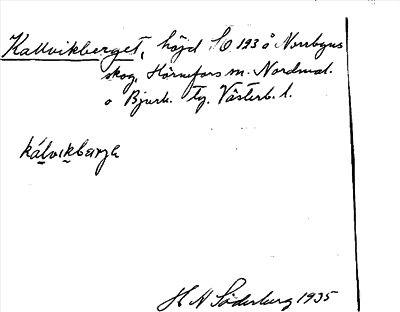 Kallvikberget, höjd SO 193 å Norrbyns
skog, Hörnefors m. Nordmal.
o Bjurh. tg. Västerb. l.
kálvikbærjə
H N Söderberg 1935